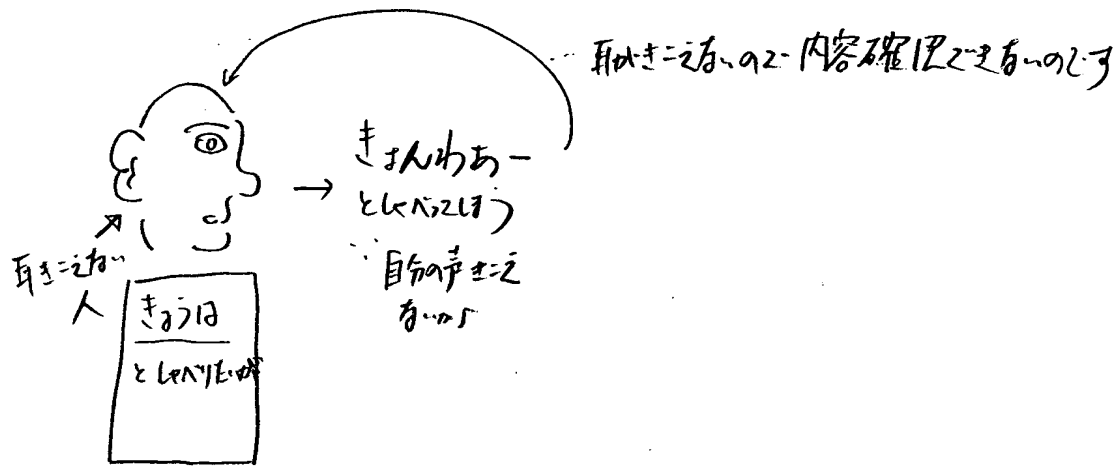 ∵ 耳がきこえないので内容確認できないのです
きょんわあー
としゃべってしまう
∵ 自分の声きこえ
ないから
耳きこえない
人
きょうは
としゃべりたいが